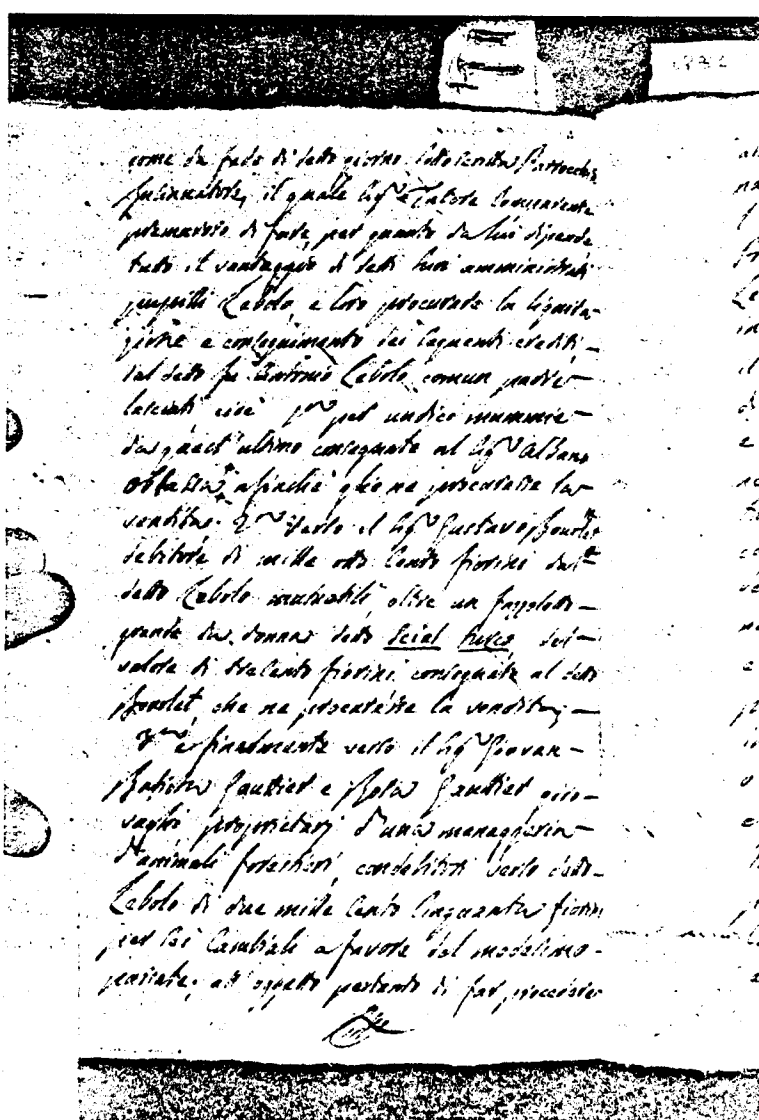 come da fede di detto giorno sottoscritta
il quale Sig.r e Tutore Comparente
premuroso di fare, per quanto da lui dipende
tutto il vantaggio di detti suoi amministrati
pupilli Lebolo, e loro procurare la liquida-
zione e conseguimento dei seguenti crediti -
dal detto fu Antonio Lebolo comun padre -
lasciati cioè p.mo per undici mummie -
da quest'ultimo consegnate al Sig.r Albano
Oblassa, affinchè glie ne procurasse la -
vendita. 2.do Verso il Sig.r Gustavo Bourlet
debitore di mille otto Cento fiorini dal
detto Lebolo mutuatili, oltre un fazzoletto -
grande da donna detto Scial turco del -
valore di trecento fiorini consegnato al detto
Bourlet che ne procurasse la vendita; -
3.zo e finalmente verso il Sig.r Giovan -
Battista Gauthier e Gauthier giro-
vaghi proprietarj d'una menaggeria -
d'animali forestieri, condebitori verso detto -
Lebolo di due mille Cento Cinquanta fiorini
per sei Cambiali a favore del medesimo -
passate; all'oggetto pertanto di far procedere